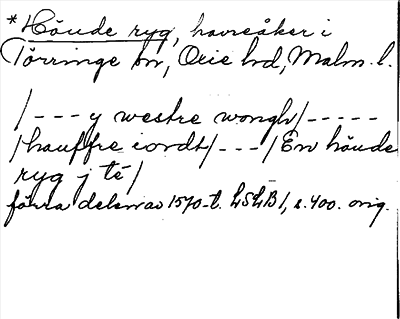 * Hönde ryg, havreåker i
Törringe sn, Oxie hd, Malm. l.
/--- y westre wongh/-----
/hauffre iordt/---/En hönde
ryg j té/
förra delen av 1570-t. LSLB1, s. 400. orig.